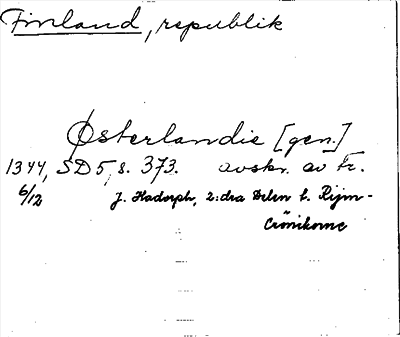 Finland, republik
Østerlandie [gen.]
1344, SD 5, s. 373. avskr. av tr.
6/12 J. Hadorph, 2:dra Delen t. Rijm-
Crönikorne